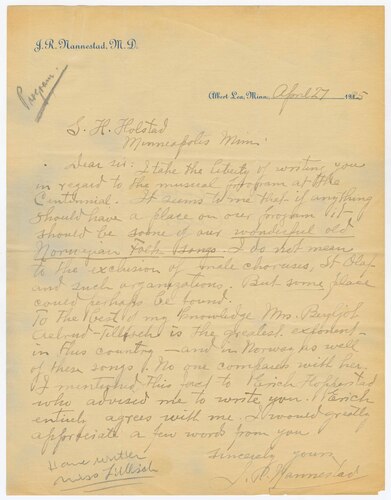 J. R. Nannestad, M. D.
Program
Albert Lea, Minn., April 27 1925
S. H. Holstad
Minneapolis Minn.
Dear sir: I take the liberty of writing you
in regard to the musical program at the
Centennial. It seems to me that if anything
should have a place on our program it
should be some of our wonderful old
Norwegian Folk songs. I do not mean
to the exclusion of male choruses, St Olaf
and such organizations. But some place
could perhaps be found.
To the best of my knowledge Mrs.
is the greatest exponent
in this country - and in Norway as well
of these songs. No one compares with her.
I mentioned this fact to
who advised me to write you.
entirely agrees with me. I would greatly
appreciate a few words from you
Sincerely yours,
J. R. Nannestad
Have written